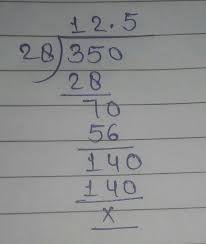 12.5
28)350
28
70
56
140
140
x